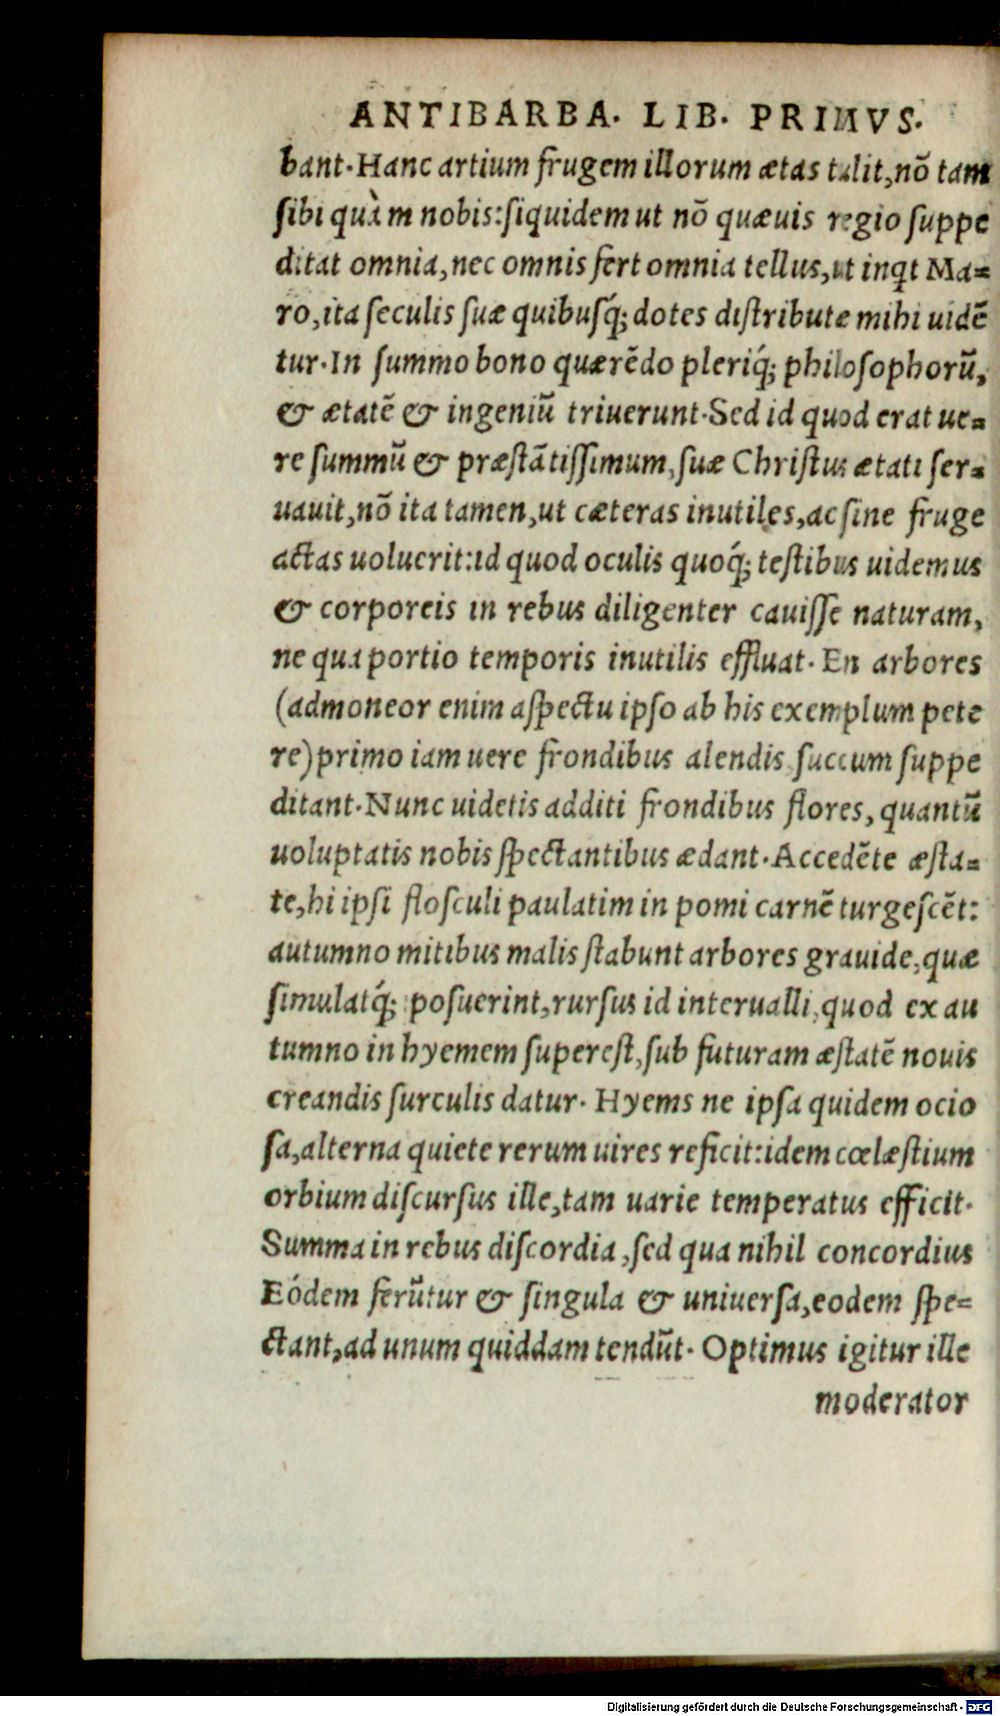 ANTIBARBA. LIB. PRIMVS.
bant. Hanc artium frugem illorum ætas tulit, nō tam
ſibi quàm nobis: ſiquidem ut nō quæuis regio ſuppe
ditat omnia, nec omnis fert omnia tellus, ut inqt Ma=
ro, ita ſeculis ſuæ quibuſq́; dotes diſtributæ mihi uidē
tur. In ſummo bono quærēdo pleriq́; philoſophorū,
& ætatē & ingeniū triuerunt. Sed id quod erat ue=
re ſummū & præſtātiſſimum, ſuæ Chriſtus ætati ſer=
uauit, nō ita tamen, ut cæteras inutiles, ac ſine fruge
actas uoluerit: id quod oculis quoq́; teſtibus uidemus
& corporeis in rebus diligenter cauiſſe naturam,
ne qua portio temporis inutilis effluat. En arbores
(admoneor enim aſpectu ipſo ab his exemplum pete
re) primo iam uere frondibus alendis ſuccum ſuppe
ditant. Nunc uidetis additi frondibus flores, quantū
uoluptatis nobis ſpectantibus ædant. Accedēte æſta=
te, hi ipſi floſculi paulatim in pomi carnē turgeſcēt:
autumno mitibus malis ſtabunt arbores grauide, quæ
ſimulatq́; poſuerint, rurſus id interualli, quod ex au
tumno in hyemem ſupereſt, ſub futuram æſtatē nouis
creandis ſurculis datur. Hyems ne ipſa quidem ocio
ſa, alterna quiete rerum uires reficit: idem cœlæſtium
orbium diſcurſus ille, tam uarie temperatus efficit.
Summa in rebus diſcordia, ſed qua nihil concordius
Eódem ferūtur & ſingula & uniuerſa, eodem ſpe=
ctant, ad unum quiddam tendūt. Optimus igitur ille
moderator
Digitalisierung gefördert durch die Deutsche Forschungsgemeinschaft - DFG